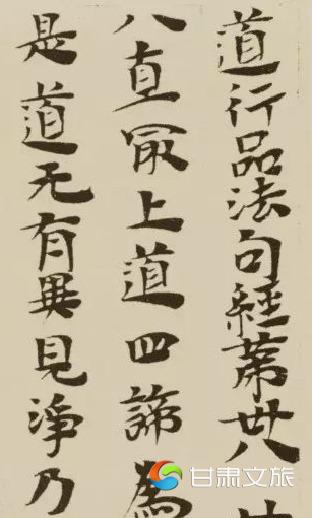 道行品法句經苐卅八
八直冣上道四諦為
是道无有異見淨乃
甘肃文旅